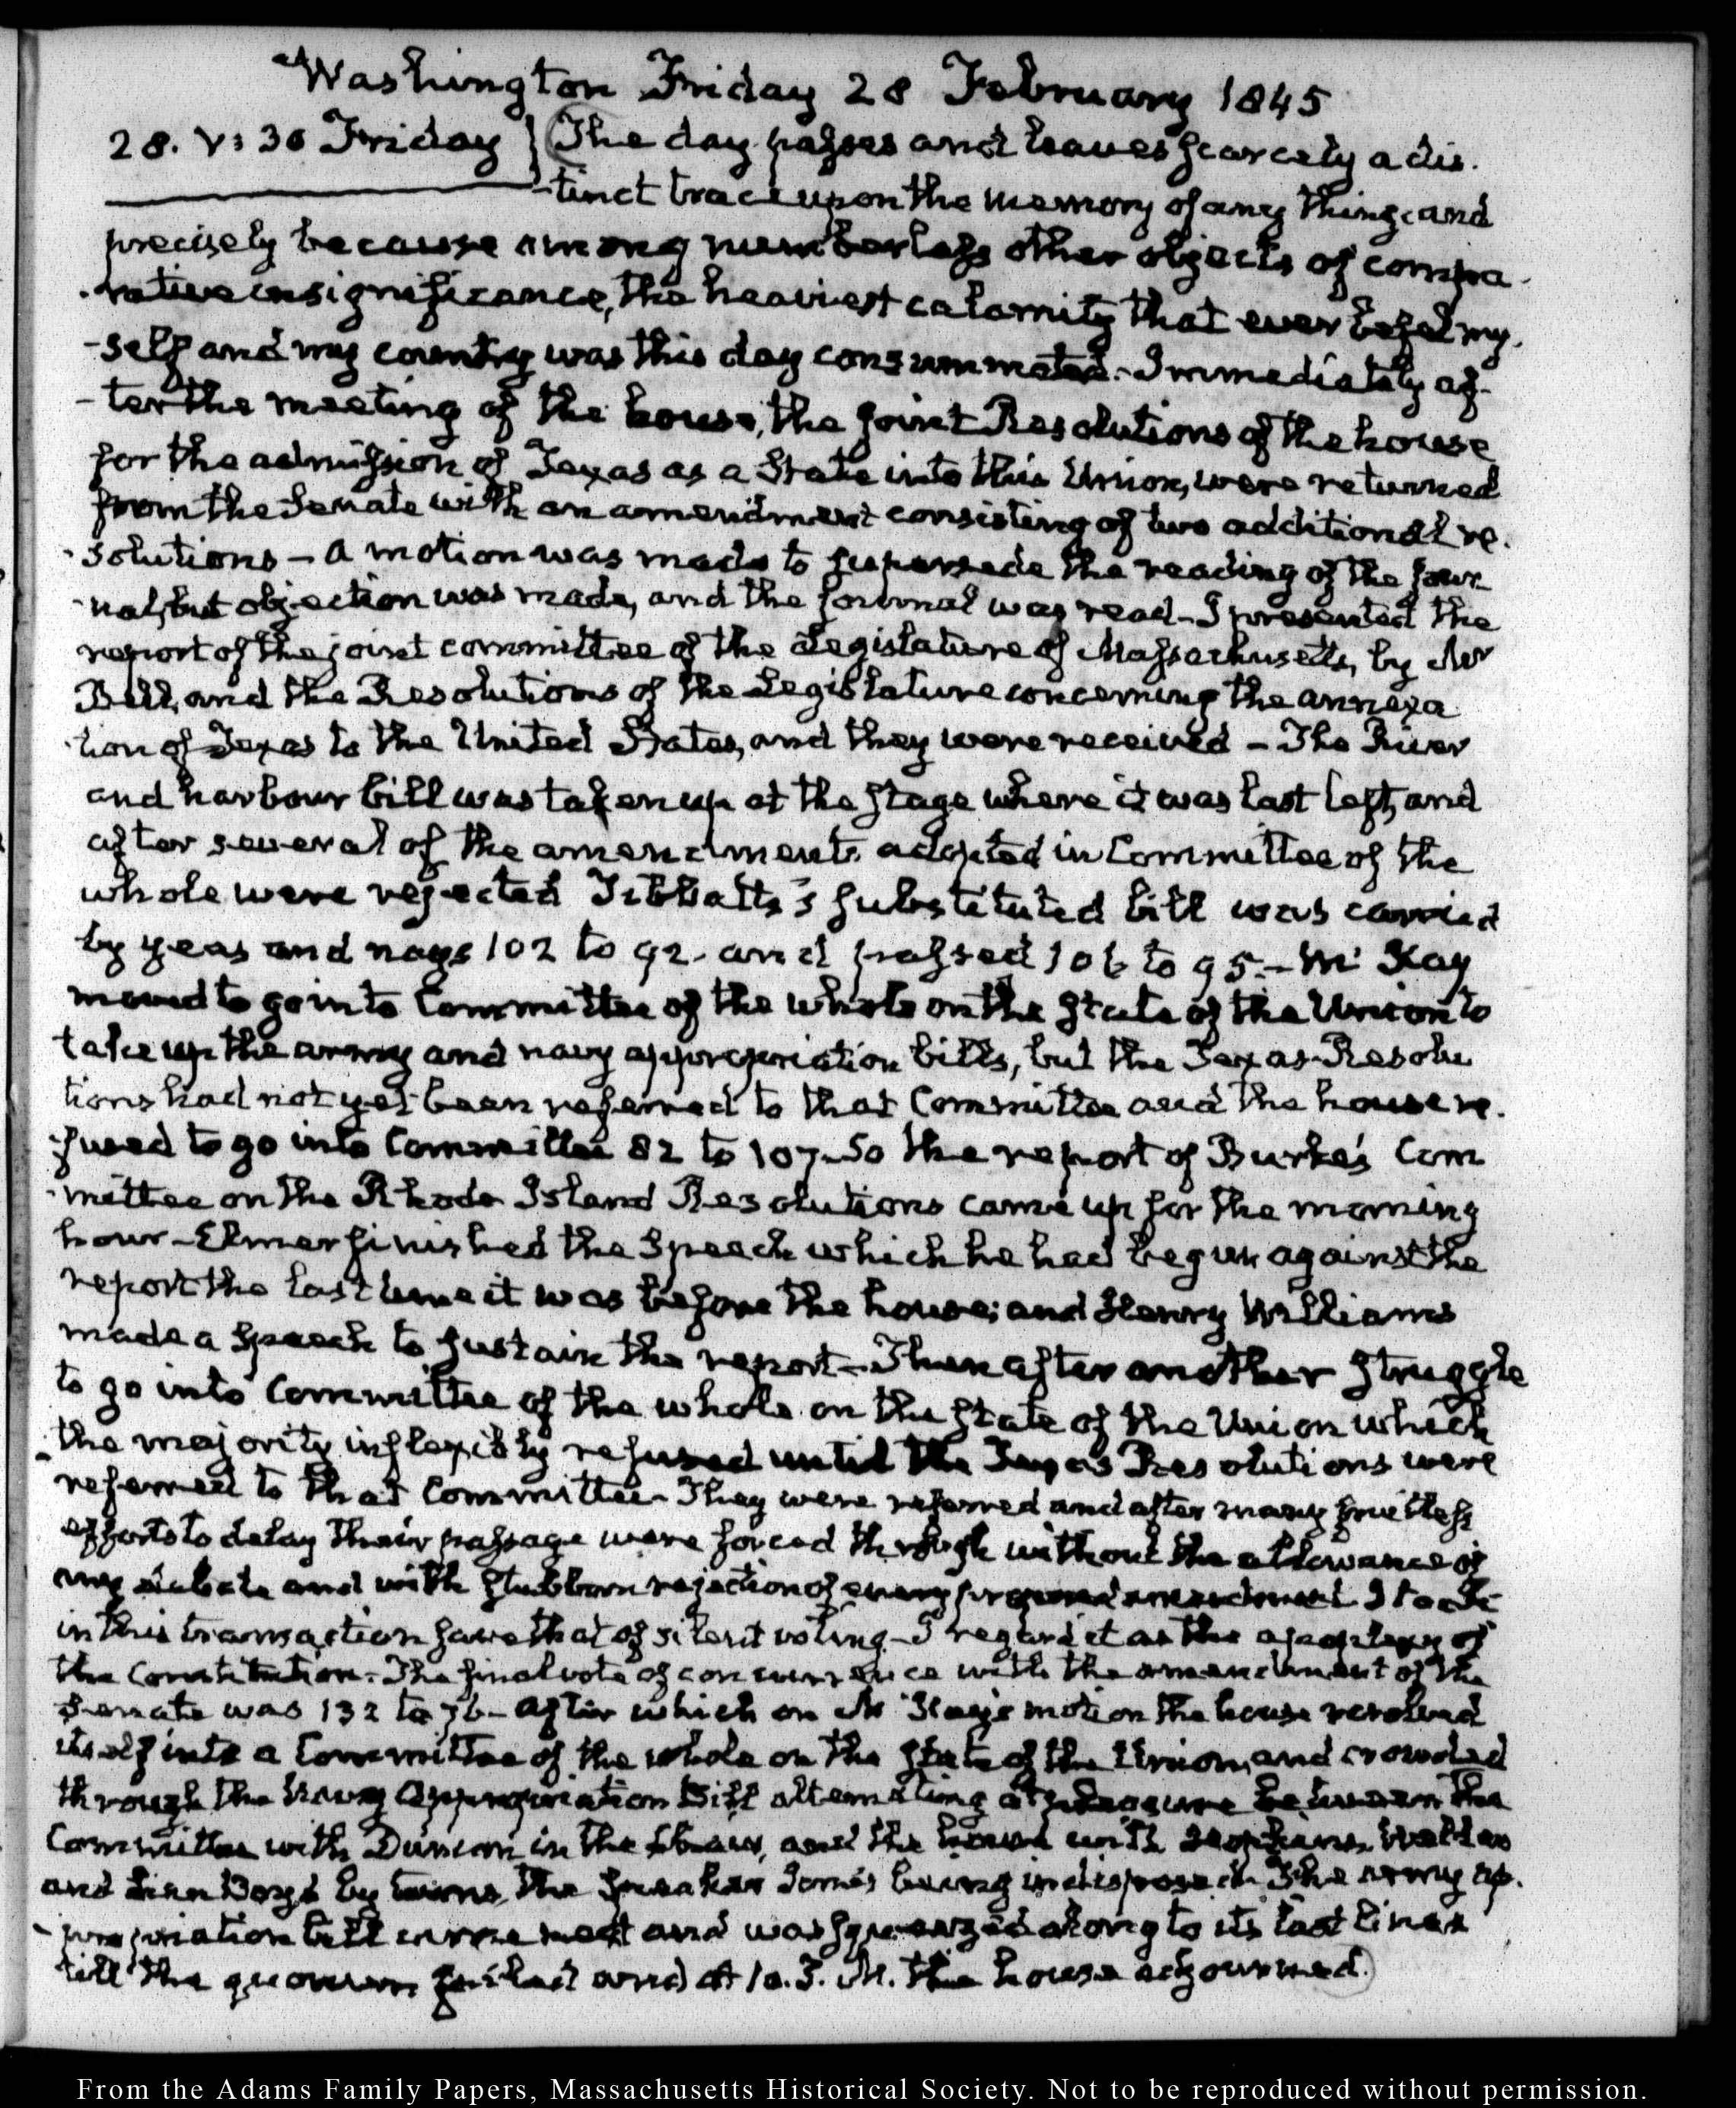 Washington Friday 28 February 1845
28. V:30 Friday } (The day passes and leaves scarcely a dis-
-tinct trace upon the memory of any thing, and
precisely because among numberless other objects of compa-
-rative insignificance, the heaviest calamity that ever befel my-
-self and my country was this day consummated. Immediately af-
-ter the meeting of the house, the joint Resolutions of the house
for the admission of Texas as a State into this Union, were returned
from the Senate with an amendment consisting of two additional re-
-solutions - a motion was made to supersede the reading of the jour-
-nal, but objection was made, and the journal was read - I presented the
report of the joint committee of the Legislature of Massachusetts, by Mr
Bell, and the Resolutions of the Legislature concerning the annexa
-tion of Texas to the United States, and they were received - The River
and harbour bill was taken up at the stage where it was last left, and
after several of the amendments adopted in Committee of the
whole were rejected Tibbatts's substituted bill was carried
by yeas and nays 102 to 92. and passed 106 to 95. - McKay
moved to go into Committee of the whole on the State of the Union to
take up the army and navy appropriation bills, but the Texas Resolu
tions had not yet been referred to that Committee and the house re-
-fused to go into Committee 82 to 107. So the report of Burke's Com
-mittee on the Rhode Island Resolutions came up for the morning
hour - Elmer finished the Speech which he had begun against the
report the last time it was before the house; and Henry Williams
made a Speech to sustain the report - Then after another struggle
to go into Committee of the whole on the State of the Union which
the majority inflexibly refused until the Texas Resolutions were
referred to that Committee - They were referred and after many fruitless
efforts to delay their passage were forced through without the allowance of
any debate and with stubborn rejection of every proposed amendment I took
in this transaction save that of silent voting - I regard it as the apoplexy of
the Constitution. The final vote of concurrence with the amendment of the
Senate was 132 to 76 - after which on McKay's motion the house resolved
itself into a Committee of the whole on the State of the Union, and crowded
through the Navy Appropriation Bill alternating at pleasure between the
Committee with Duncan in the chair, and the house with Hopkins,
and Linn Boyd by turns, the Speaker Jones being indisposed. The army ap-
-propriation bill came next and was squeezed along to its last lines
till the quorum failed and at 10. P. M. the house adjourned.)
From the Adams Family Papers, Massachusetts Historical Society. Not to be reproduced without permission.